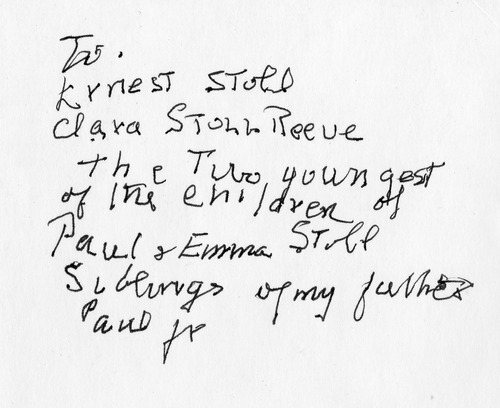 To.
Ernest Stoll
Clara Stoll Reeve
the Two youngest
of the children of
Paul & Emma Stoll
Siblings of my father
Paul Jr